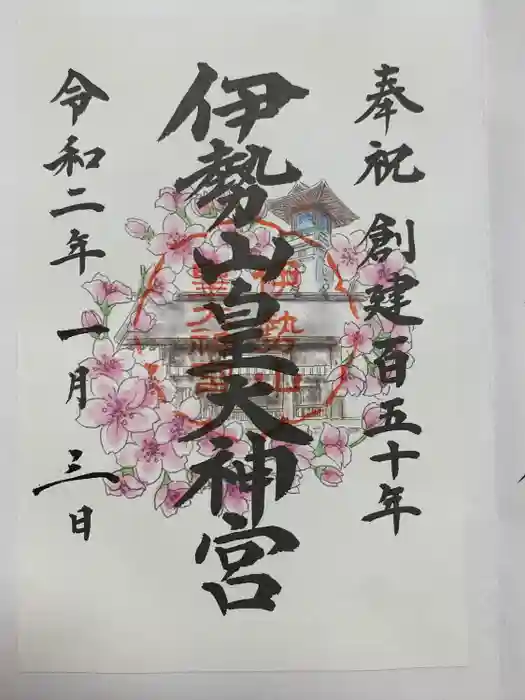 奉祝 創建百五十年
伊勢山皇大神宮
令和二年 一月 三日
伊勢山
皇大神宮